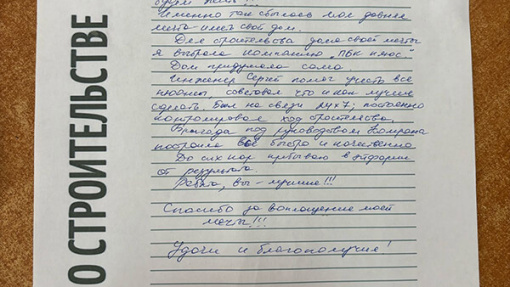 О СТРОИТЕЛЬСТВЕ
Именно так сбылась моя давняя
мечта - иметь свой дом.
Для строительства дома своей мечты
я выбрала компанию „ПБК плюс".
Дом придумала сама.
Инженер Сергей помог учесть все
нюансы, советовал что и как лучше
сделать. Был на связи 24х7; постоянно
контролировал ход строительства.
Бригада под руководством
построила всё быстро и качественно
До сих пор пребываю в эйфории
от результата.
Ребята, вы - лучшие!!!
Спасибо за воплощение моей
мечты!!!
Удачи и благополучия!